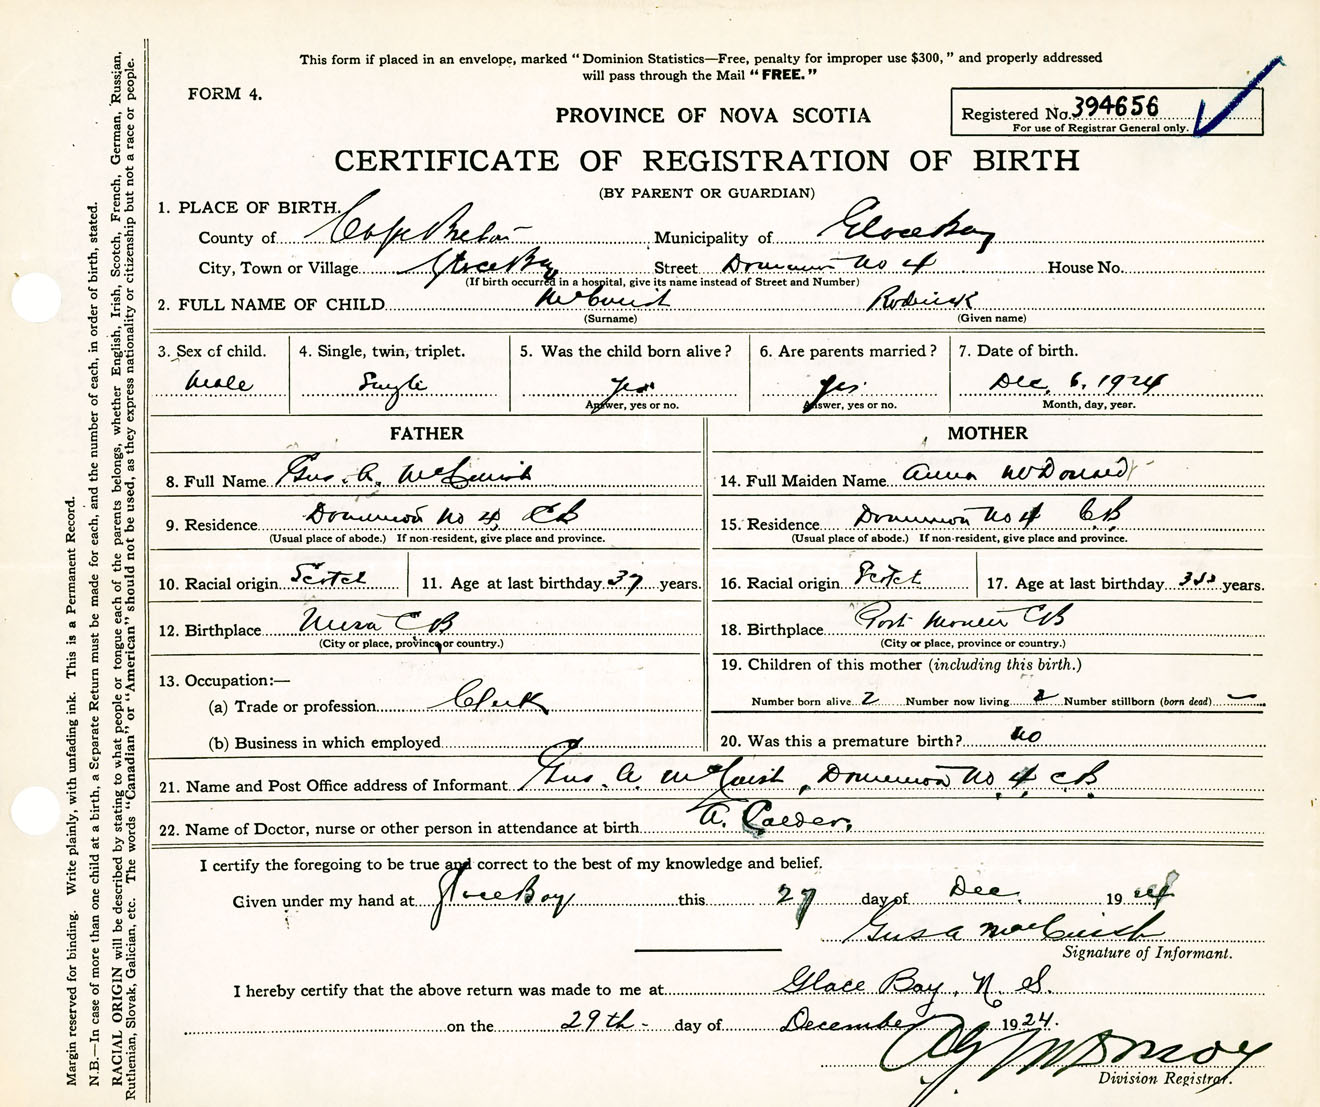 This form if placed in an envelope, marked “Dominion Statistics—Free, penalty for improper use $300,” and properly addressed
will pass through the Mail “FREE.”
FORM 4.
PROVINCE OF NOVA SCOTIA
Registered No. 394656
For use of Registrar General only.
CERTIFICATE OF REGISTRATION OF BIRTH
(BY PARENT OR GUARDIAN)
1. PLACE OF BIRTH.
County of Cape Breton Municipality of Glace Bay
City, Town or Village Glace Bay Street Dominion No 4 House No.
(If birth occurred in a hospital, give its name instead of Street and Number)
2. FULL NAME OF CHILD McCuish Roderick
(Surname) (Given name)
3. Sex of child. 4. Single, twin, triplet. 5. Was the child born alive? 6. Are parents married? 7. Date of birth.
Male Single Yes Yes Dec. 6, 1924
Answer, yes or no. Answer, yes or no. Month, day, year.
FATHER MOTHER
8. Full Name Gus. A. McCuish 14. Full Maiden Name Anna McDonald
9. Residence Dominion No 4, CB 15. Residence Dominion No 4 CB
(Usual place of abode.) If non-resident, give place and province. (Usual place of abode.) If non-resident, give place and province.
10. Racial origin Scotch 11. Age at last birthday 37 years. 16. Racial origin Scotch 17. Age at last birthday years.
12. Birthplace Mira CB 18. Birthplace Port Morien CB
(City or place, province or country.) (City or place, province or country.)
19. Children of this mother (including this birth.)
13. Occupation:—
(a) Trade or profession Clerk Number born alive 2 Number now living 2 Number stillborn (born dead) —
(b) Business in which employed 20. Was this a premature birth? No
21. Name and Post Office address of Informant Gus. A. McCuish, Dominion No. 4, C.B.
22. Name of Doctor, nurse or other person in attendance at birth A. Calder.
I certify the foregoing to be true and correct to the best of my knowledge and belief.
Given under my hand at Glace Bay this 27 day of Dec. 1924
Gus A MacCuish
Signature of Informant.
I hereby certify that the above return was made to me at Glace Bay, N. S.
on the 29th - day of December 1924.
Division Registrar.
Margin reserved for binding. Write plainly, with unfading ink. This is a Permanent Record.
N.B.—In case of more than one child at a birth, a Separate Return must be made for each, and the number of each, in order of birth, stated.
RACIAL ORIGIN will be described by stating to what people or tongue each of the parents belongs, whether English, Irish, Scotch, French, German, Russian,
Ruthenian, Slovak, Galician, etc. The words “Canadian” or “American” should not be used, as they express nationality or citizenship but not a race or people.